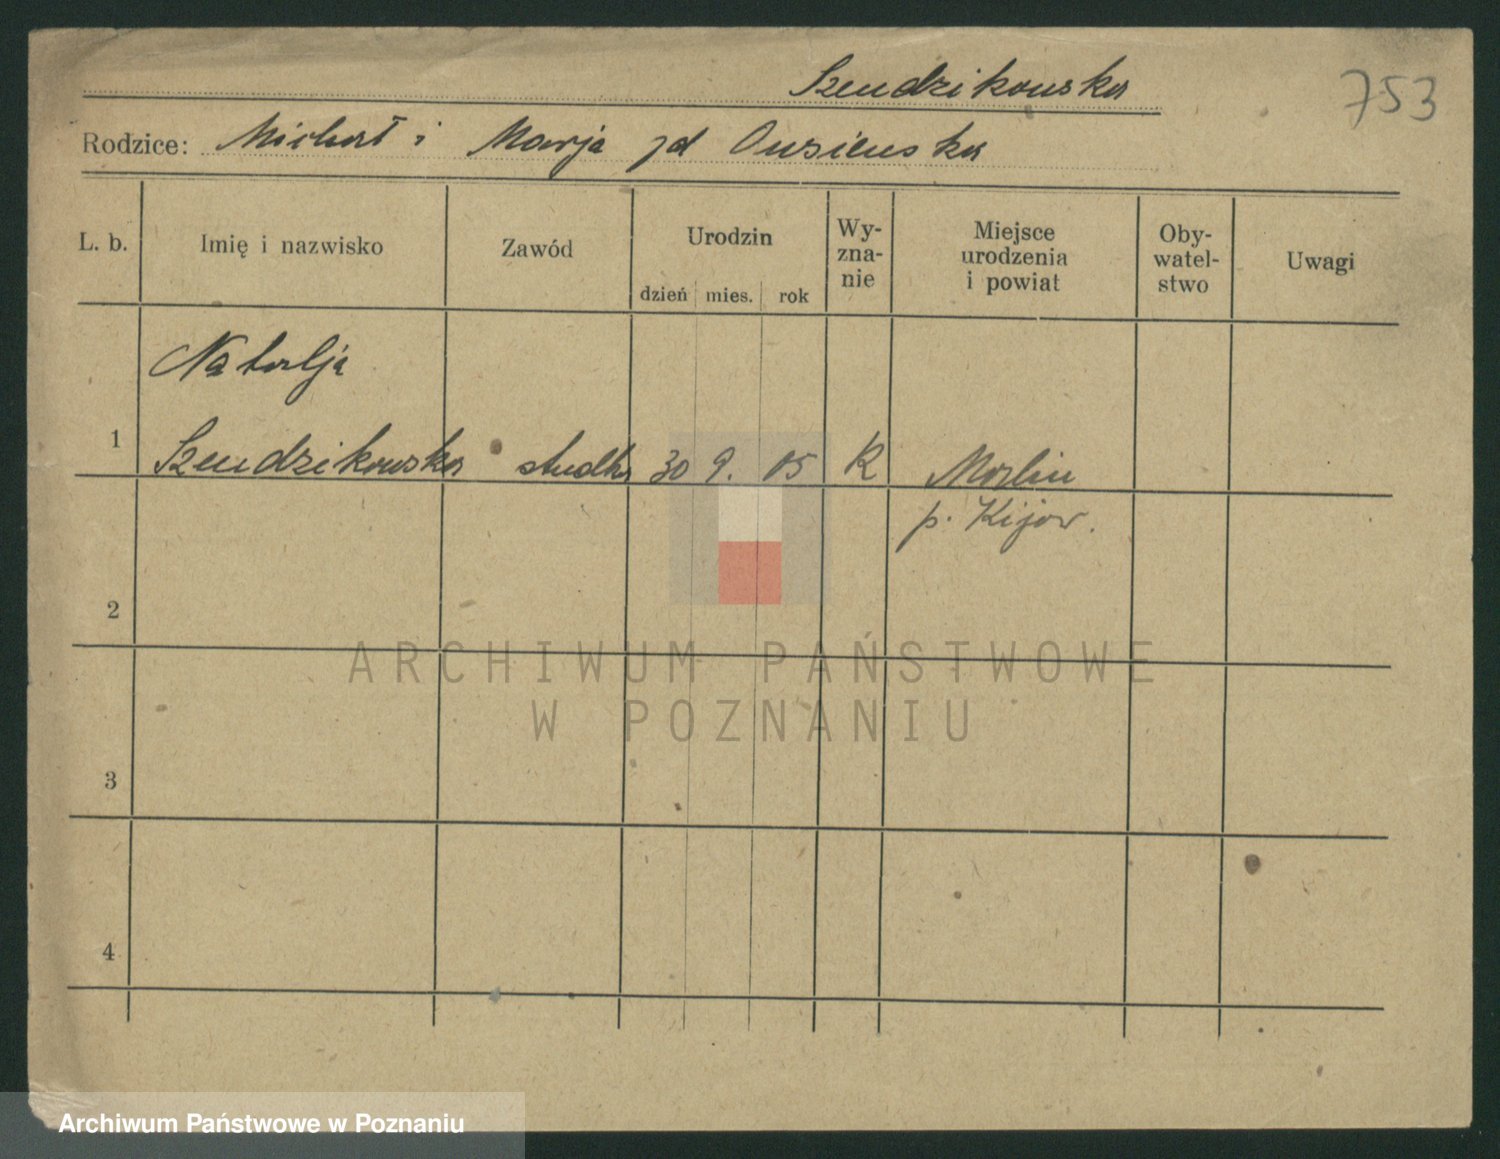 Szendzikowska
753
Rodzice: Michał i Marja zd Ousieuska
L. b.
Imię i nazwisko
Zawód
Urodzin
dzień mies. rok
Wy-
zna-
nie
Miejsce
urodzenia
i powiat
Oby-
watel-
stwo
Uwagi
Natalja
1 Szendzikowska studtka 30 9. 05 K
p. Kijow.
2
3
4
ARCHIWUM PAŃSTWOWE
W POZNANIU
Archiwum Państwowe w Poznaniu